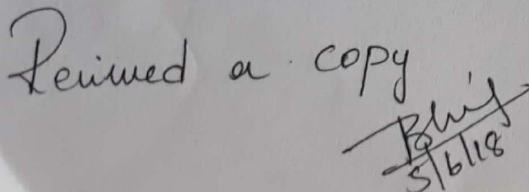 Received a copy
5/6/18